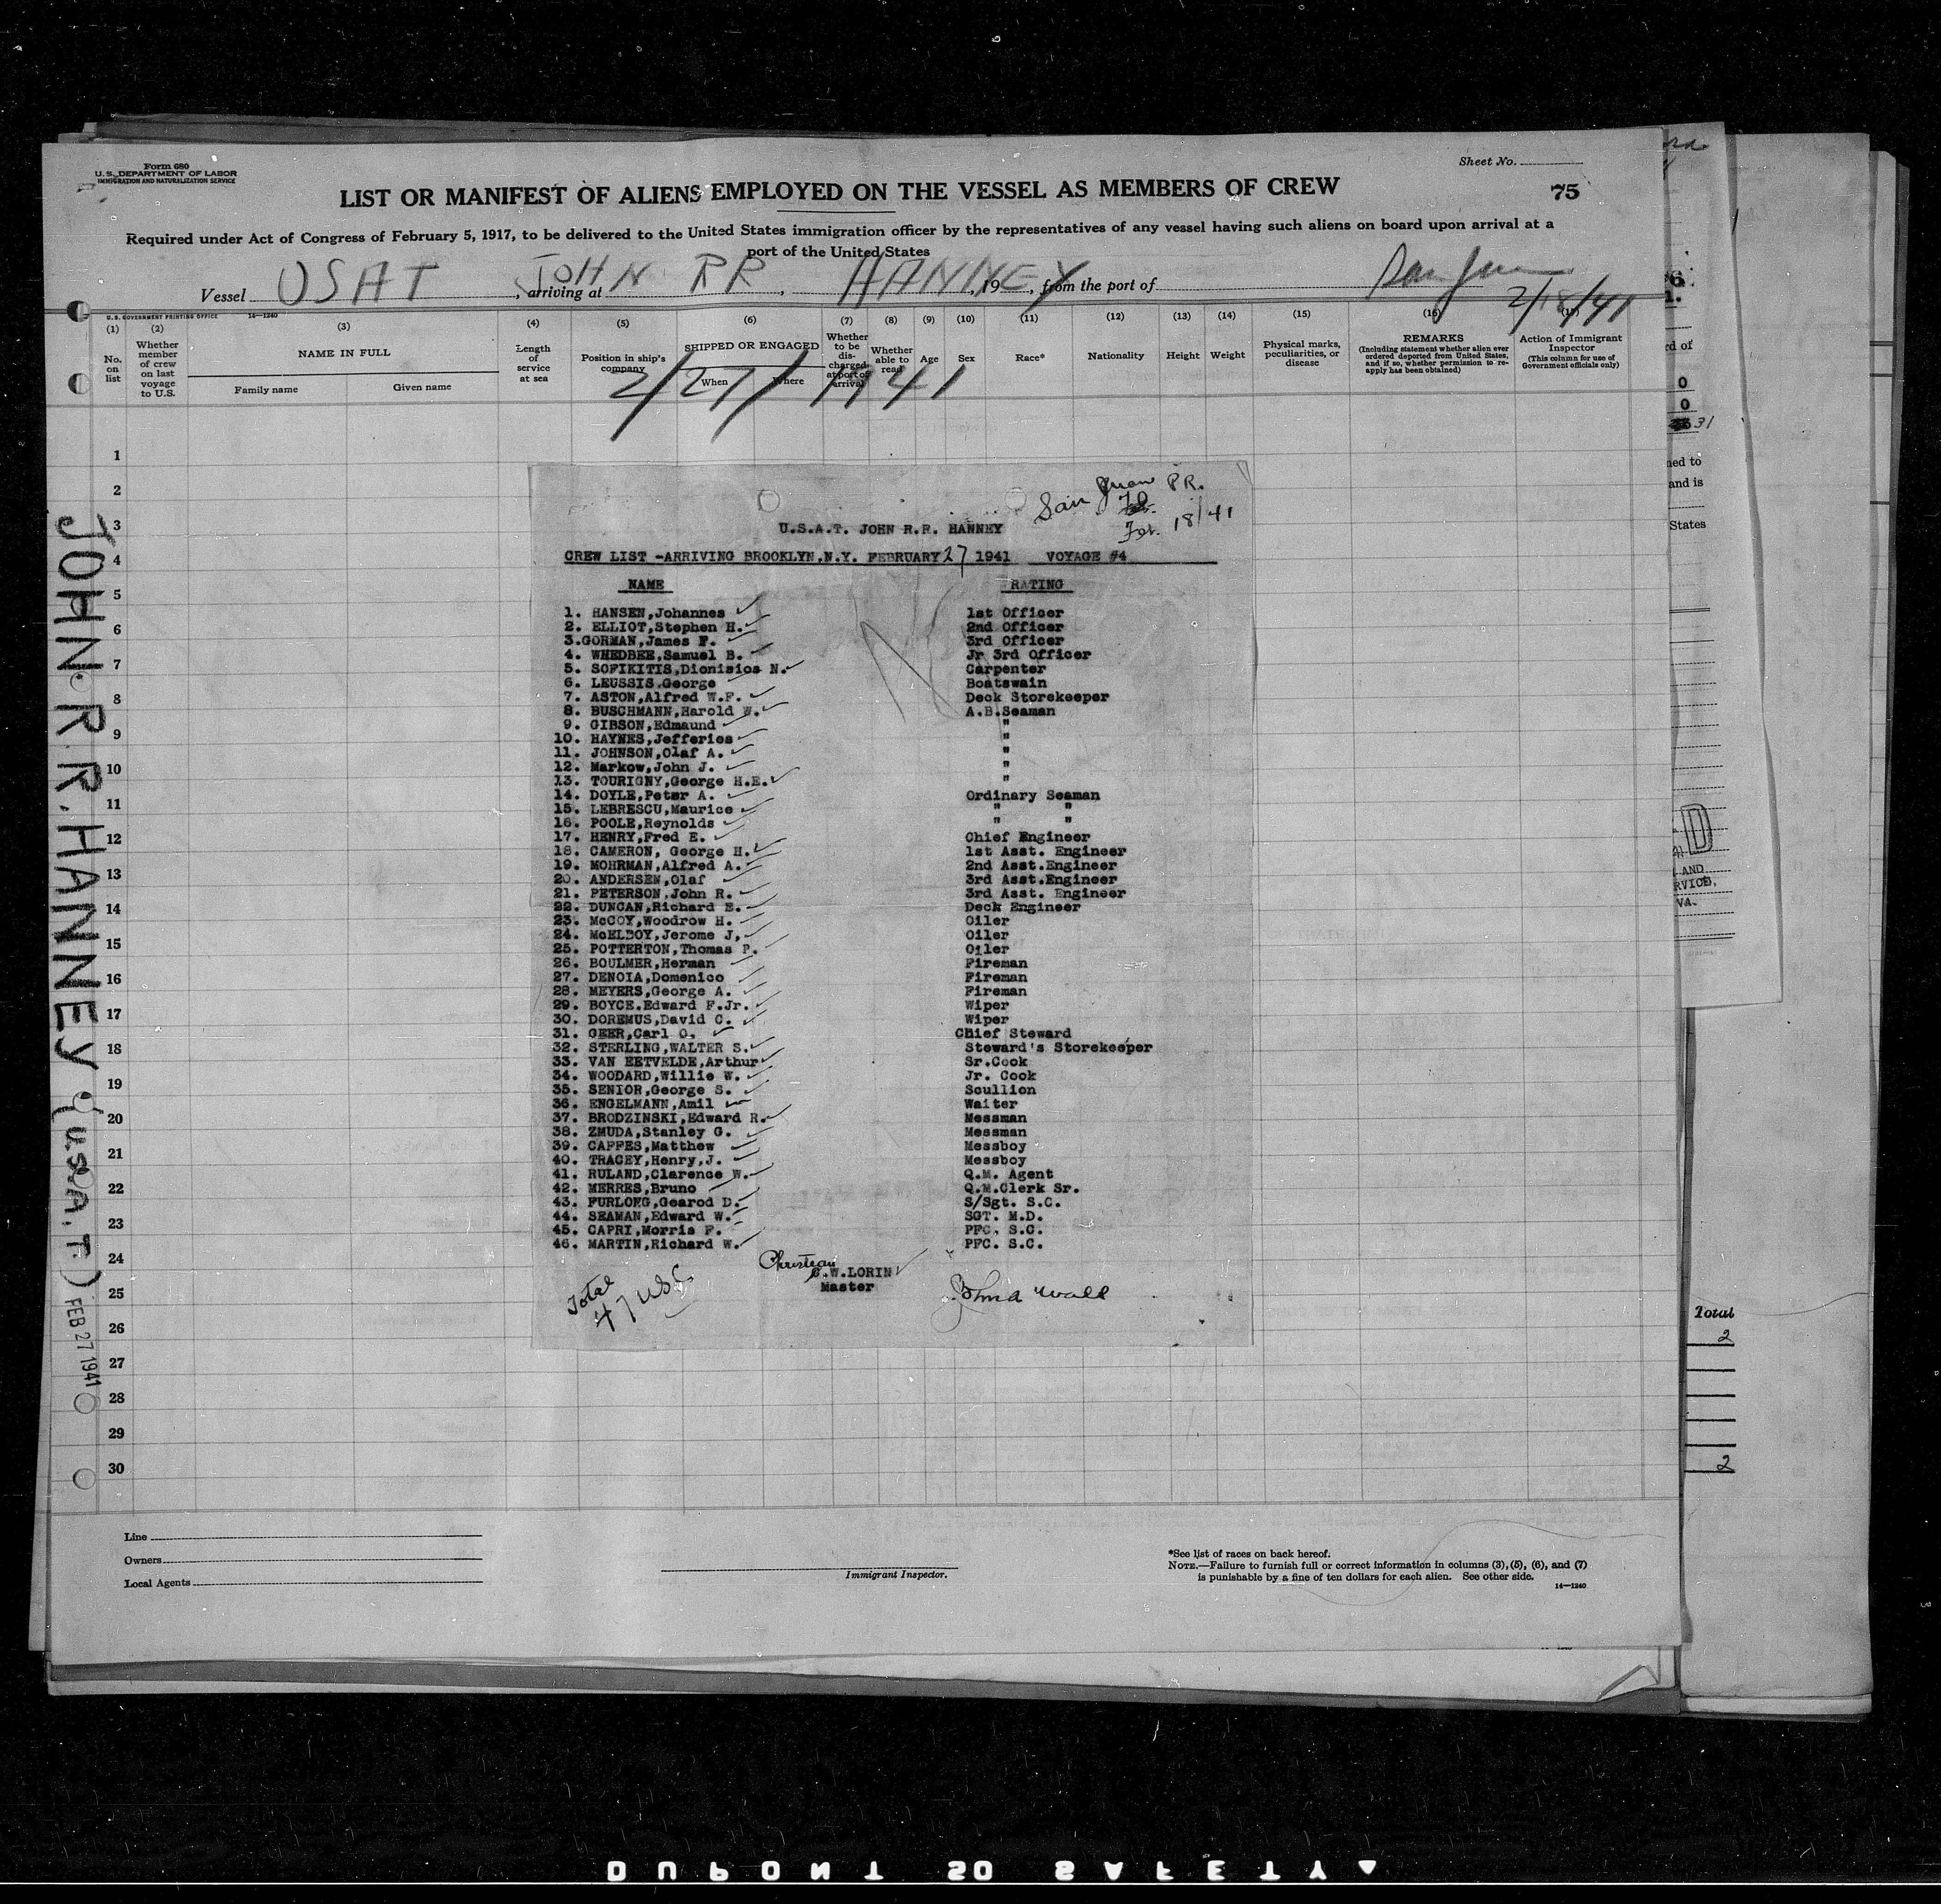 Form 680
U. S. DEPARTMENT OF LABOR
IMMIGRATION AND NATURALIZATION SERVICE
Sheet No.
LIST OR MANIFEST OF ALIENS EMPLOYED ON THE VESSEL AS MEMBERS OF CREW
75
Required under Act of Congress of February 5, 1917, to be delivered to the United States immigration officer by the representatives of any vessel having such aliens on board upon arrival at a
port of the United States
Vessel USAT JOHN RR HANNEY, arriving at , 19 , from the port of San Juan
2/18/41
U. S. GOVERNMENT PRINTING OFFICE 14—1240
(1) (2) (3) (4) (5) (6) (7) (8) (9) (10) (11) (12) (13) (14) (15) (16) (17)
No. on list
Whether member of crew on last voyage to U.S.
NAME IN FULL
Family name Given name
Length of service at sea
Position in ship's company
SHIPPED OR ENGAGED
When Where
Whether to be discharged at port of arrival
Whether able to read
Age
Sex
Race*
Nationality
Height
Weight
Physical marks, peculiarities, or disease
REMARKS
(Including statement whether alien ever ordered deported from United States, and if so, whether permission to reapply has been obtained)
Action of Immigrant Inspector
(This column for use of Government officials only)
2/27/1941
1
2
3
4
5
6
7
8
9
10
11
12
13
14
15
16
17
18
19
20
21
22
23
24
25
26
27
28
29
30
JOHN R.R. HANNEY (U.S.A.T.) FEB 27 1941
San Juan P.R.
Feb. 18/41
U.S.A.T. JOHN R.R. HANNEY
CREW LIST -ARRIVING BROOKLYN,N.Y. FEBRUARY 27 1941 VOYAGE #4
NAME RATING
1. HANSEN,Johannes 1st Officer
2. ELLIOT,Stephen H. 2nd Officer
3.GORMAN,James F. 3rd Officer
4. WHEDBEE,Samuel B. Jr 3rd Officer
5. SOFIKITIS,Dionisios N. Carpenter
6. LEUSSIS.George Boatswain
7. ASTON,Alfred W.F. Deck Storekeeper
8. BUSCHMANN,Harold W. A.B.Seaman
9. GIBSON,Edmaund "
10. HAYNES,Jefferies "
11. JOHNSON,Olaf A. "
12. Markow,John J. "
13. TOURIGNY,George H.E. "
14. DOYLE,Peter A. Ordinary Seaman
15. LEBRESCU,Maurice " "
16. POOLE,Reynolds " "
17. HENRY,Fred E. Chief Engineer
18. CAMERON, George H. 1st Asst. Engineer
19. MOHRMAN,Alfred A. 2nd Asst.Engineer
20. ANDERSEN,Olaf 3rd Asst.Engineer
21. PETERSON,John R. 3rd Asst. Engineer
22. DUNCAN,Richard E. Deck Engineer
23. McCOY,Woodrow H. Oiler
24. McELROY,Jerome J, Oiler
25. POTTERTON,Thomas P. Oiler
26. BOULMER,Herman Fireman
27. DENOIA,Domenico Fireman
28. MEYERS,George A. Fireman
29. BOYCE.Edward F.Jr. Wiper
30. DOREMUS,David C. Wiper
31. GEER,Carl O. Chief Steward
32. STERLING,WALTER S. Steward's Storekeeper
33. VAN EETVELDE,Arthur Sr.Cook
34. WOODARD,Willie W. Jr. Cook
35. SENIOR,George S. Scullion
36. ENGELMANN,Amil Waiter
37. BRODZINSKI,Edward R. Messman
38. ZMUDA,Stanley G. Messman
39. CAFFES,Matthew Messboy
40. TRACEY,Henry,J. Messboy
41. RULAND,Clarence W. Q.M. Agent
42. MERRES,Bruno Q.M.Clerk Sr.
43. FURLONG,Gearod D. S/Sgt. S.C.
44. SEAMAN,Edward W. SGT. M.D.
45. CAPRI,Morris F. PFC. S.C.
46. MARTIN,Richard W. PFC. S.C.
Christian
C.W.LORIN
Master
Total
47 USC
Line
Owners
Local Agents
Immigrant Inspector.
*See list of races on back hereof.
NOTE.—Failure to furnish full or correct information in columns (3), (5), (6), and (7)
is punishable by a fine of ten dollars for each alien. See other side.
14—1240
rd of
0
0
31
ned to
and is
States
D
AND
RVICE,
VA.
Total
2
2
DUPONT SO SAFETY